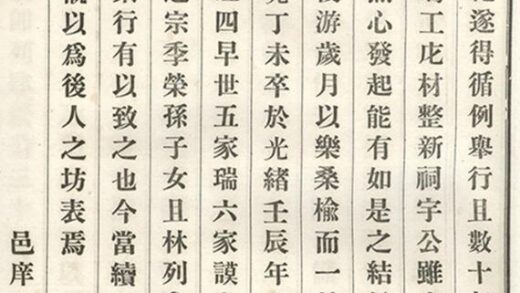 遂得循例舉行且數十
工庀材整新祠宇公雖
心發起能有如是之結
游歲月以樂桑榆而一
丁未卒於光緒壬辰年
四早世五家瑞六家謨
宗季榮孫子女且林列
行有以致之也今當續
以爲後人之坊表焉
邑庠